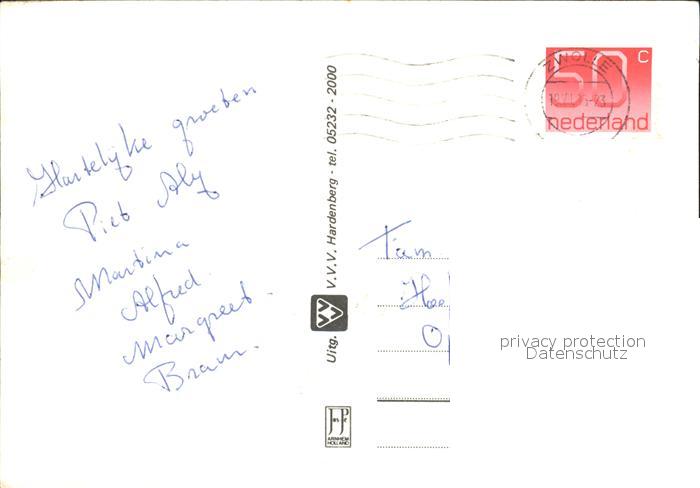 Hartelijke groeten
Piet Aly
Martina
Alfred.
Margreet.
Bram.
Uitg. V.V.V. Hardenberg - tel. 05232 - 2000
ARNHEM
HOLLAND
ZWOLLE
50 C
nederland
privacy protection
Datenschutz